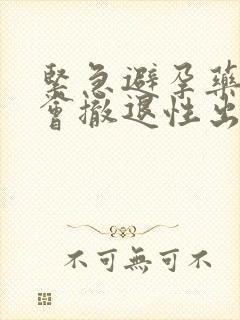 緊急避孕藥
會撤退性出
不可無可不